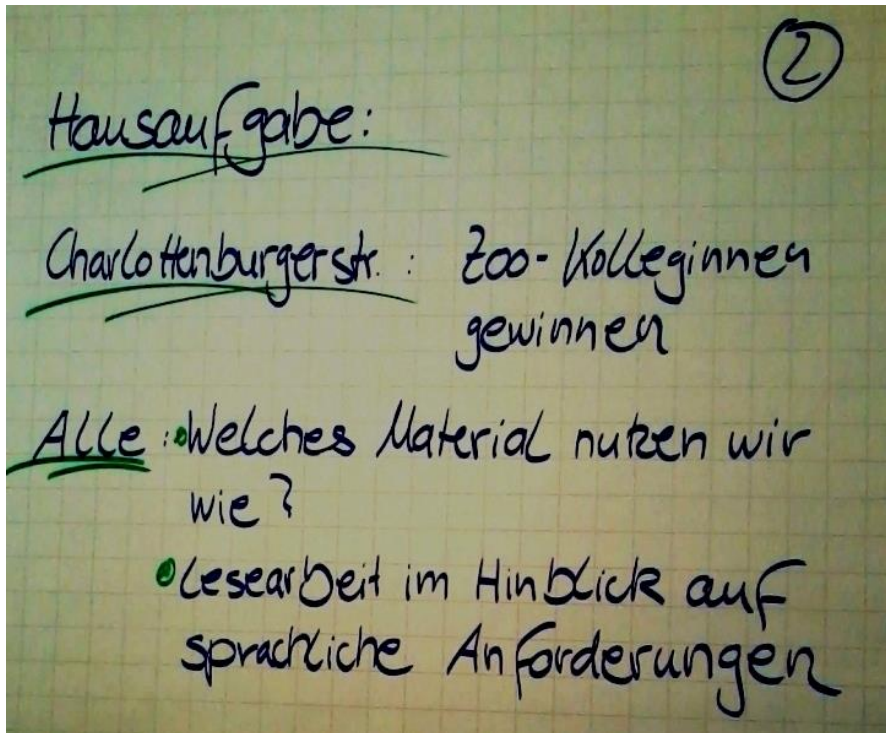 2
Hausaufgabe:
Charlottenburgerstr. : Zoo-Kolleginnen
gewinnen
Alle : • Welches Material nutzen wir
wie?
• Lesearbeit im Hinblick auf
sprachliche Anforderungen